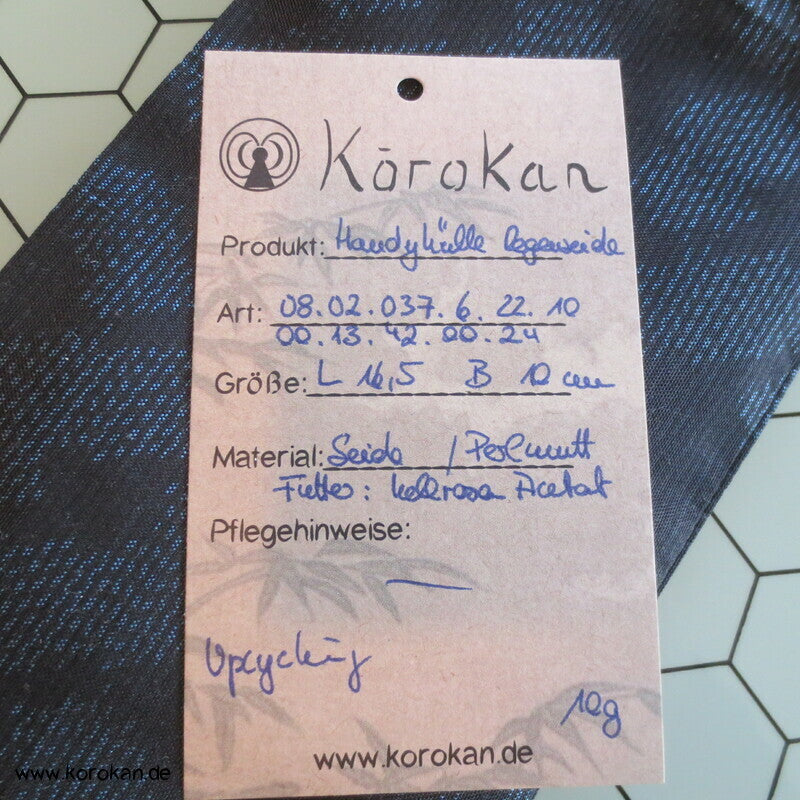 Kōrokan
Produkt: Handyhülle Regenseide
Art: 08.02.037.6.22.10
00.13.42.00.24
Größe: L 16,5 B 10 cm
Material: Seide / Perlmutt
Futter: hellrosa Acetat
Pflegehinweise:
—
Upcycling
10g
www.korokan.de
www.korokan.de